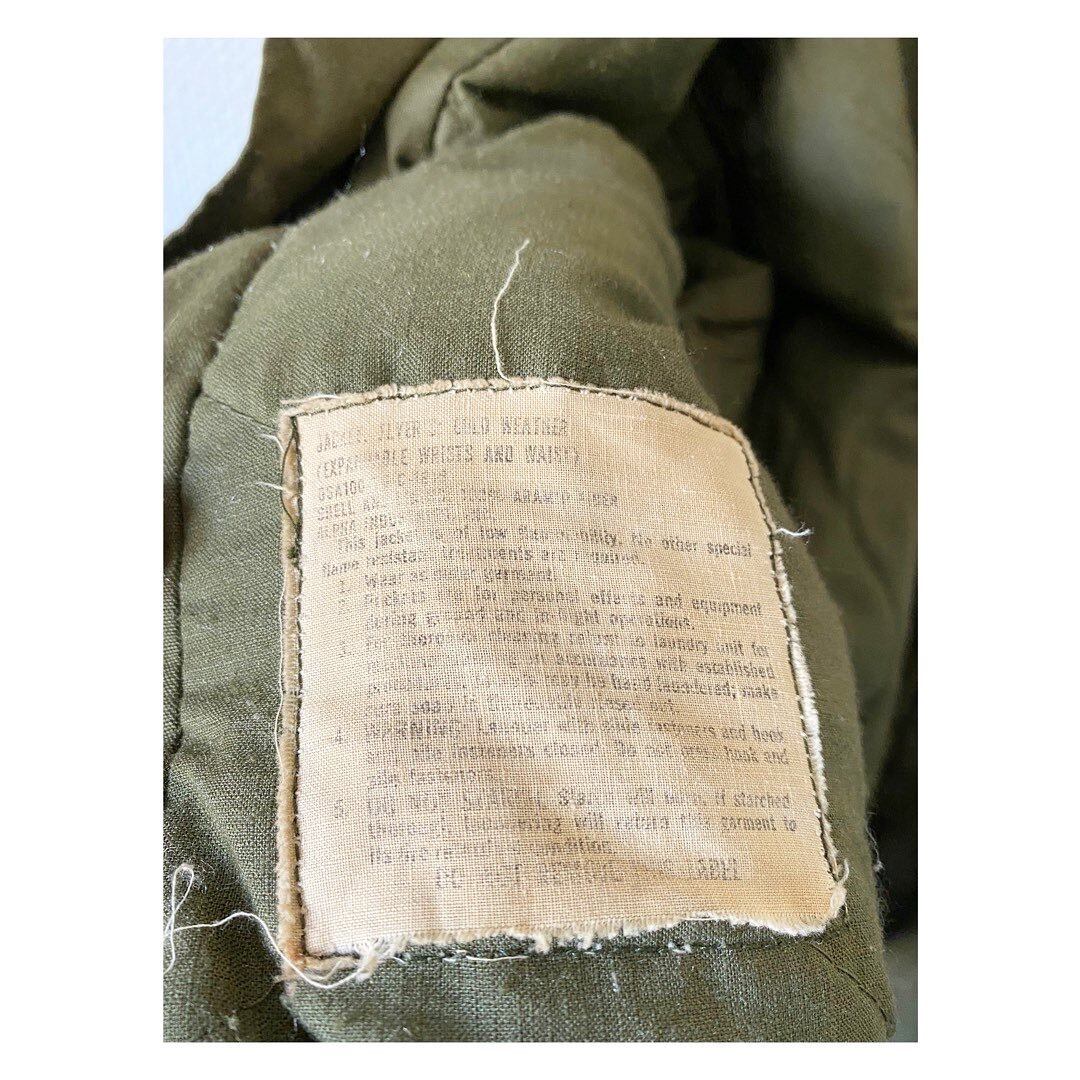 JACKET, FLYER'S COLD WEATHER
(EXPANDABLE WRISTS AND WAIST)
SHELL AND 100% ARAMID FIBER
ALPHA INDUSTRIES, INC
This jacket is of low flammability. No other special
flame resistant treatments are required.
1. Wear as outer garment.
2. Pockets are for personal effects and equipment
during ground and in-flight operations.
3. For thorough cleaning return to laundry unit for
in accordance with established
may be hand laundered; make
sure soap is thoroughly rinsed out.
4. WARNING: Launder with slide fasteners and hook
and pile fasteners closed. Do not press hook and
pile fasteners.
5. DO NOT STARCH. Starch will burn. If starched
thorough laundering will return this garment to
its fire resistant condition.
DO NOT REMOVE THIS LABEL